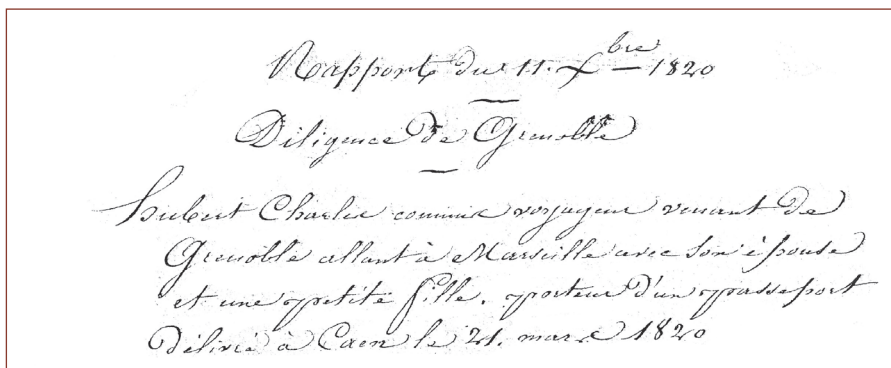 Rapport du 11. Xbre 1820
Diligence de Grenoble
hubert Charlie commis voyageur venant de
Grenoble allant à Marseille avec son épouse
et une petite fille. porteur d'un passeport
délivré à Caen le 21. mars 1820